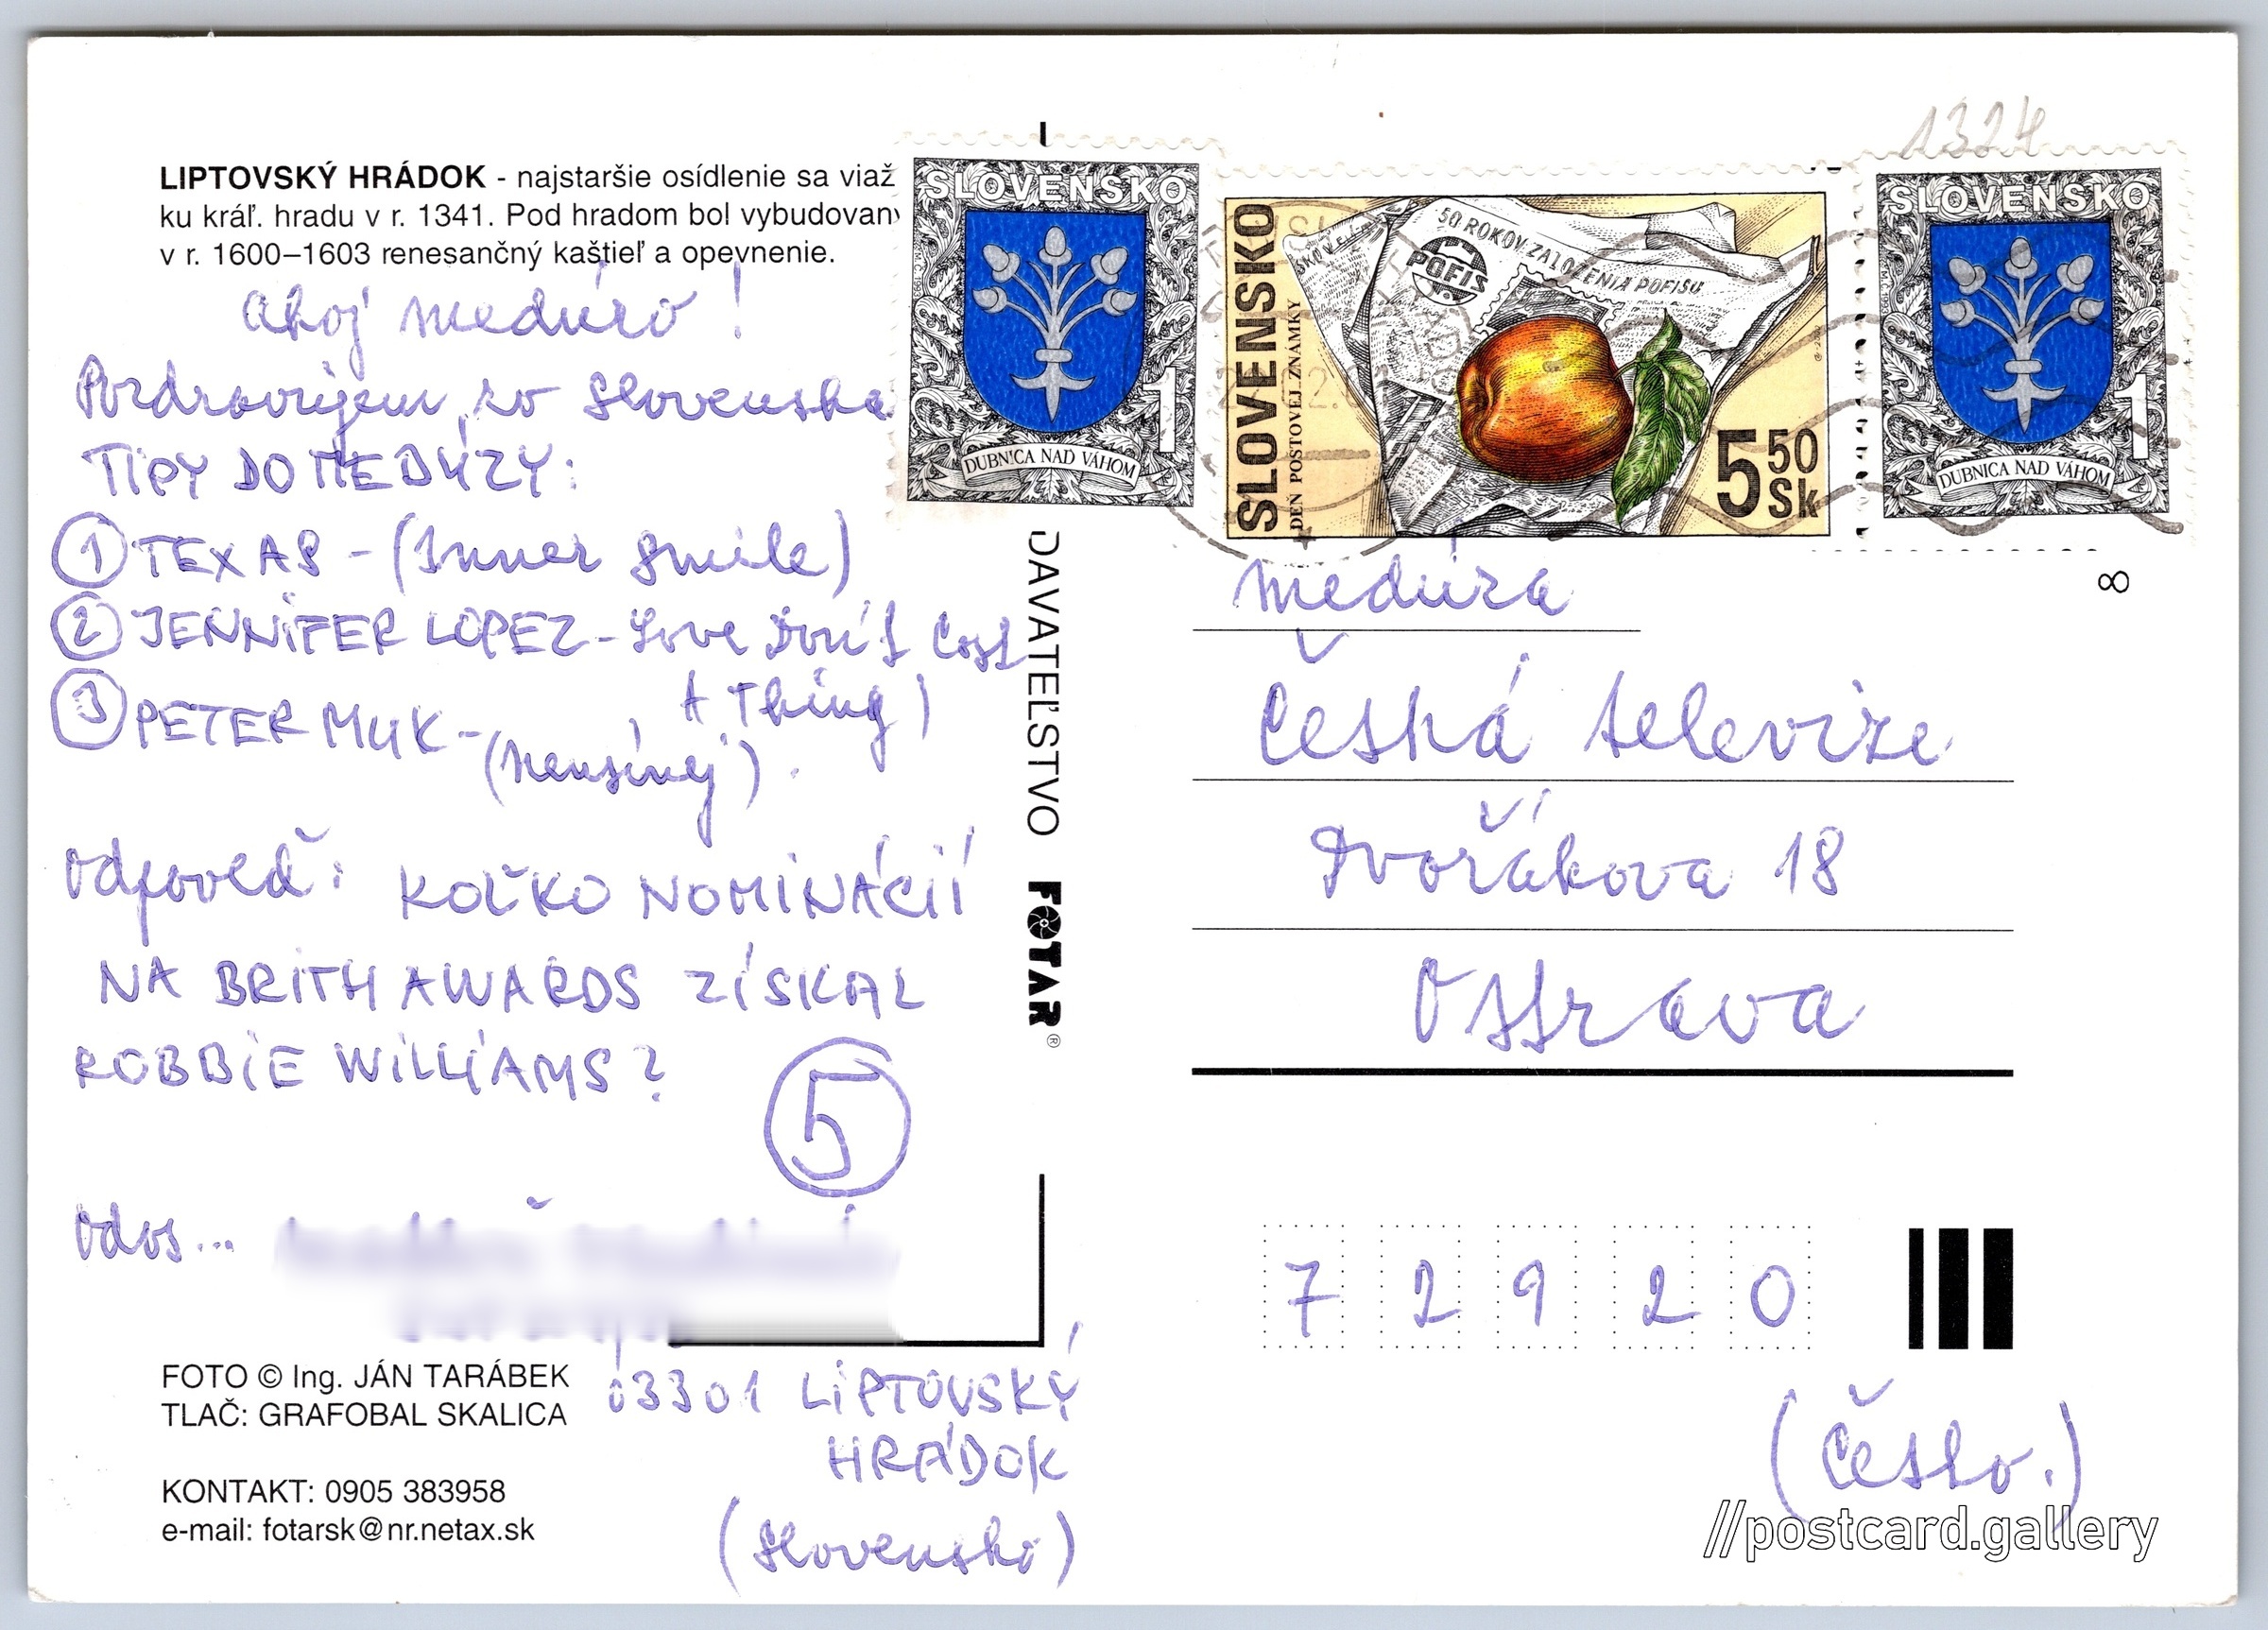 1324
LIPTOVSKÝ HRÁDOK - najstaršie osídlenie sa viaž
ku kráľ. hradu v r. 1341. Pod hradom bol vybudovan
v r. 1600–1603 renesančný kaštieľ a opevnenie.
Ahoj medúzo!
Pozdravujem zo Slovenska
TIPY DO MEDÚZY:
① TEXAS - (Inner Smile)
② JENNIFER LOPEZ - Love Don't Cost
A Thing)
③ PETER MUK -
(Nensínej).
Odpoveď: KOĽKO NOMINÁCIÍ
NA BRITH AWARDS ZÍSKAL
ROBBIE WILLIAMS?
5
Odos...
FOTO © Ing. JÁN TARÁBEK
TLAČ: GRAFOBAL SKALICA
KONTAKT: 0905 383958
e-mail: fotarsk@nr.netax.sk
03301 LIPTOVSKÝ
HRÁDOK
(Slovensko)
DAVATEĽSTVO FOTAR®
SLOVENSKO
1
DUBNICA NAD VÁHOM
SLOVENSKO
DEŇ POŠTOVEJ ZNÁMKY
50 ROKOV ZALOŽENIA POFISU
POFIS
5 50
Sk
SLOVENSKO
1
DUBNICA NAD VÁHOM
∞
Medúza
Česká televize
Dvořákova 18
Ostrava
7 2 9 2 0
(Česko.)
//postcard.gallery